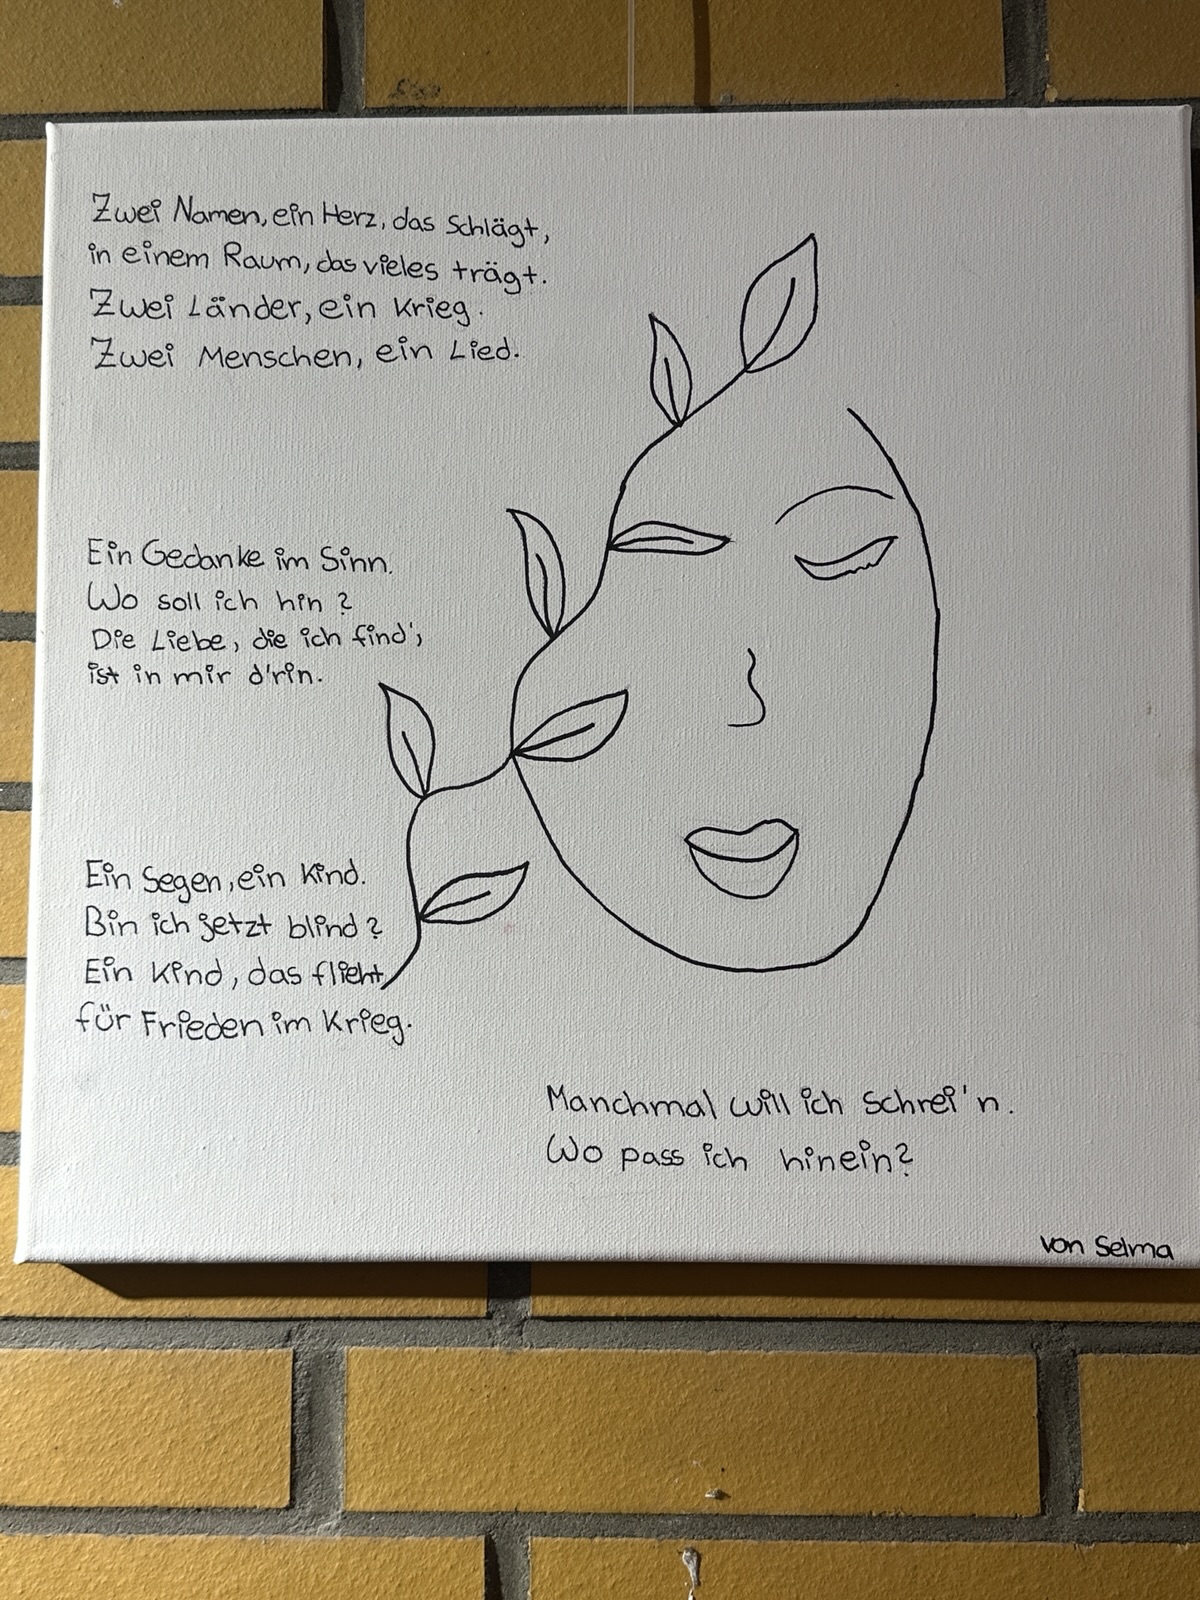 Zwei Namen, ein Herz, das Schlägt,
in einem Raum, das vieles trägt.
Zwei Länder, ein Krieg.
Zwei Menschen, ein Lied.
Ein Gedanke im Sinn.
Wo soll ich hin?
Die Liebe, die ich find',
ist in mir d'rin.
Ein Segen, ein Kind.
Bin ich jetzt blind?
Ein Kind, das flieht,
für Frieden im Krieg.
Manchmal will ich Schrei'n.
Wo pass ich hinein?
von Selma